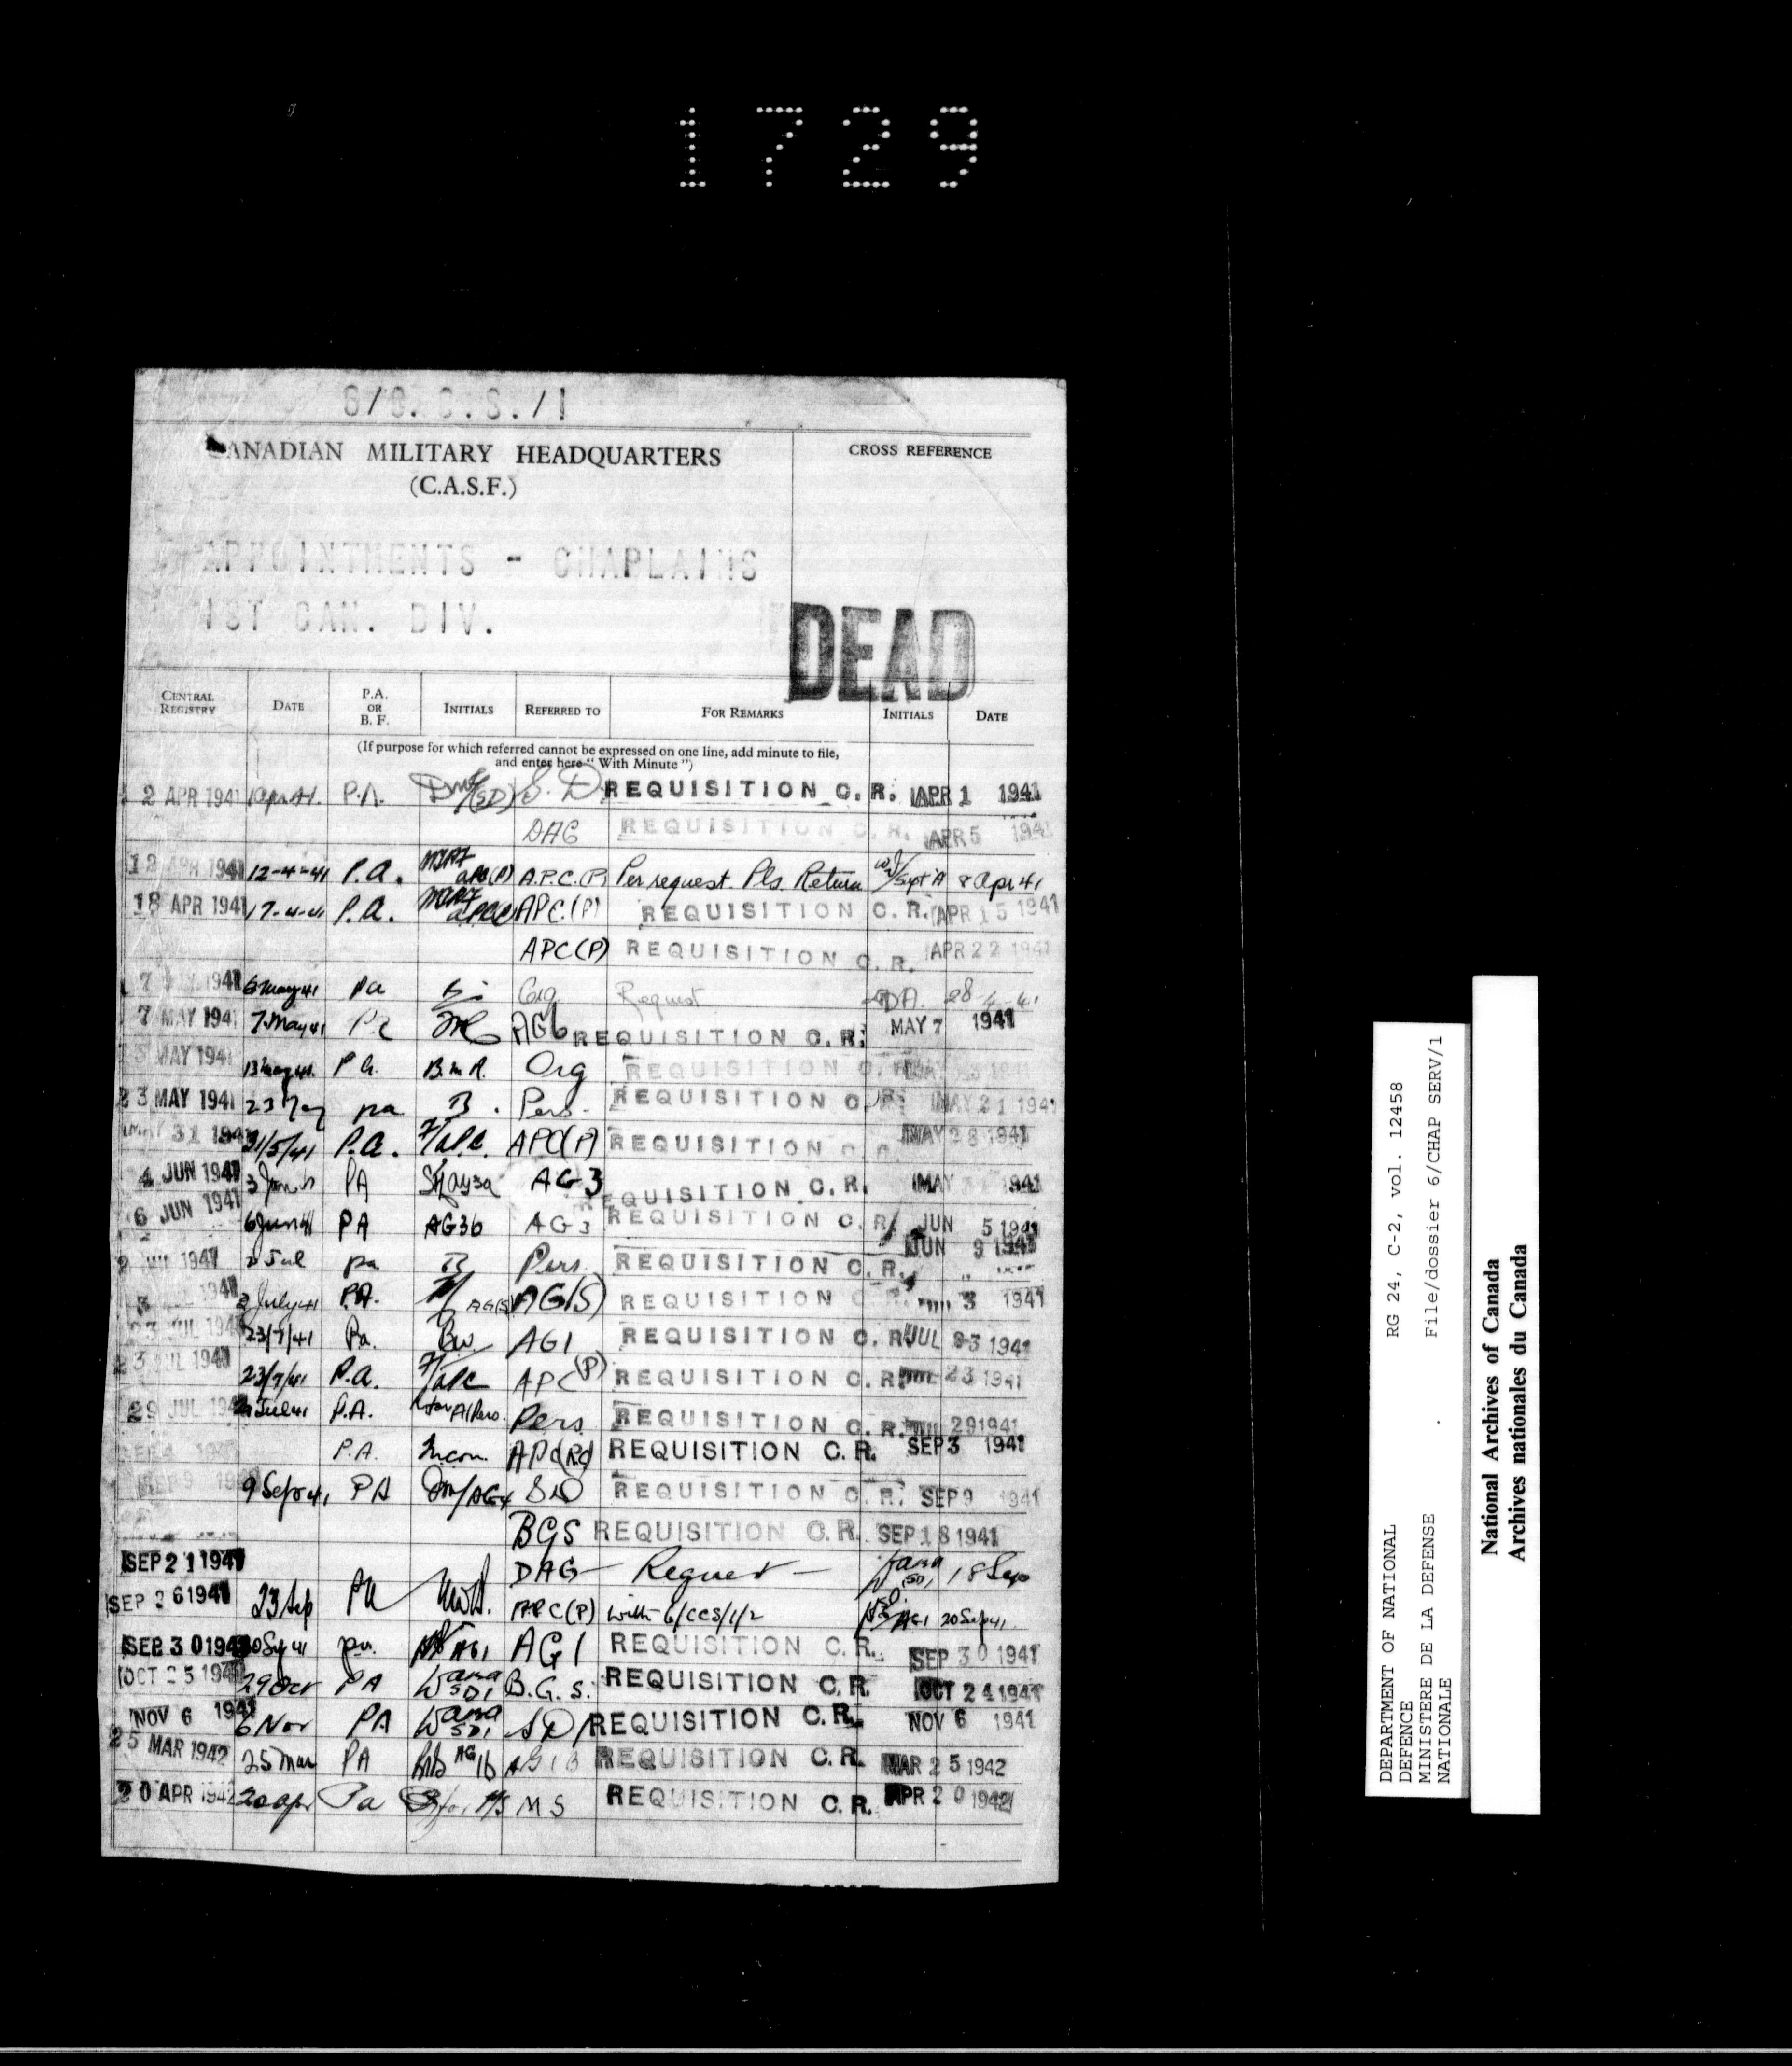 1729
6/C.C.S./1
CANADIAN MILITARY HEADQUARTERS
(C.A.S.F.)
CROSS REFERENCE
APPOINTMENTS - CHAPLAINS
1ST CAN. DIV.
DEAD
CENTRAL REGISTRY DATE P.A. OR B. F. INITIALS REFERRED TO FOR REMARKS INITIALS DATE
(If purpose for which referred cannot be expressed on one line, add minute to file,
and enter here "With Minute")
2 APR 1941 P.A. (SD) S.D. REQUISITION C.R. APR 1 1941
DAG REQUISITION C.R. APR 5 1941
12 APR 1941 12-4-41 P.A. A.P.C.(P) Per request. Pls. Return 8 Apr 41
18 APR 1941 17-4-41 P.A. APC.(P) REQUISITION C.R. APR 15 1941
APC(P) REQUISITION C.R. APR 22 1941
7 MAY 1941 6 May 41 Pa Org. Request 28-4-41
7 MAY 1941 7 May 41 AG6 REQUISITION C.R. MAY 7 1941
MAY 1941 13 May 41 P.A. B.M.R. Org REQUISITION C.R.
23 MAY 1941 23 May pa B. Pers. REQUISITION C.R. MAY 21 1941
MAY 31 1941 31/5/41 P.A. APC(P) REQUISITION C.R. MAY 28 1941
4 JUN 1941 3 Jun PA AG3 REQUISITION C.R. MAY 31 1941
6 JUN 1941 6 Jun 41 PA AG3b AG3 REQUISITION C.R. JUN 5 1941
2 JUL 1941 2 Jul pa B Pers. REQUISITION C.R. JUN 9 1941
JUL 1941 3 July 41 P.A. AG(S) AG(S) REQUISITION C.R. 3 1941
23 JUL 1941 23/7/41 Pa. AG1 REQUISITION C.R. JUL 23 1941
23 JUL 1941 23/7/41 P.A. APC(P) REQUISITION C.R. JUL 23 1941
29 JUL 1941 29 Jul 41 P.A. Pers REQUISITION C.R. JUL 29 1941
SEP 4 P.A. APC(RC) REQUISITION C.R. SEP 3 1941
SEP 9 9 Sep 41 PA SD REQUISITION C.R. SEP 9 1941
BGS REQUISITION C.R. SEP 18 1941
SEP 21 1941 DAG - Request - 18 Sep
SEP 26 1941 23 Sep PA A.P.C(P) with 6/CCS/1/2 20 Sep 41
SEP 30 1941 30 Sep 41 pa. AG1 AG1 REQUISITION C.R. SEP 30 1941
OCT 25 1941 29 Oct PA SD1 B.G.S. REQUISITION C.R. OCT 24 1941
NOV 6 1941 6 Nov PA SD1 SD1 REQUISITION C.R. NOV 6 1941
25 MAR 1942 25 Mar PA AG 1b AG1B REQUISITION C.R. MAR 25 1942
20 APR 1942 20 Apr Pa MS REQUISITION C.R. APR 20 1942
DEPARTMENT OF NATIONAL RG 24, C-2, vol. 12458
DEFENCE
MINISTERE DE LA DEFENSE File/dossier 6/CHAP SERV/1
NATIONALE
National Archives of Canada
Archives nationales du Canada